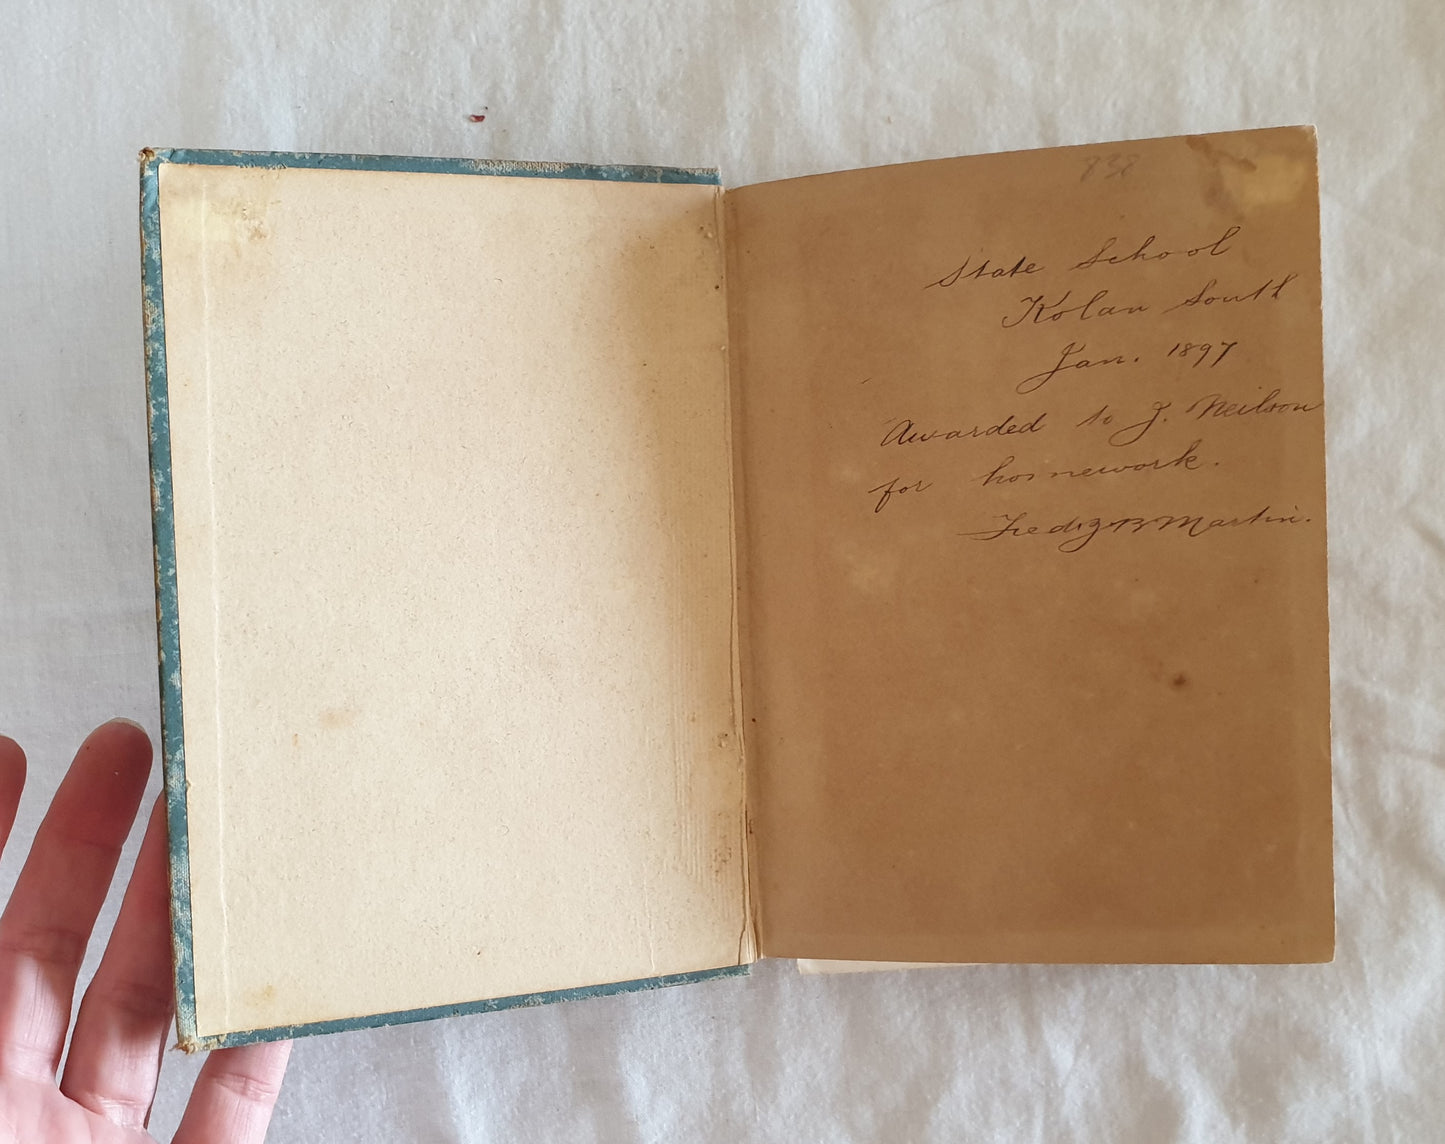 838
State School
Kolan South
Jan. 1897
Awarded to J. Neilson
for homework.
Fredk B Martin.